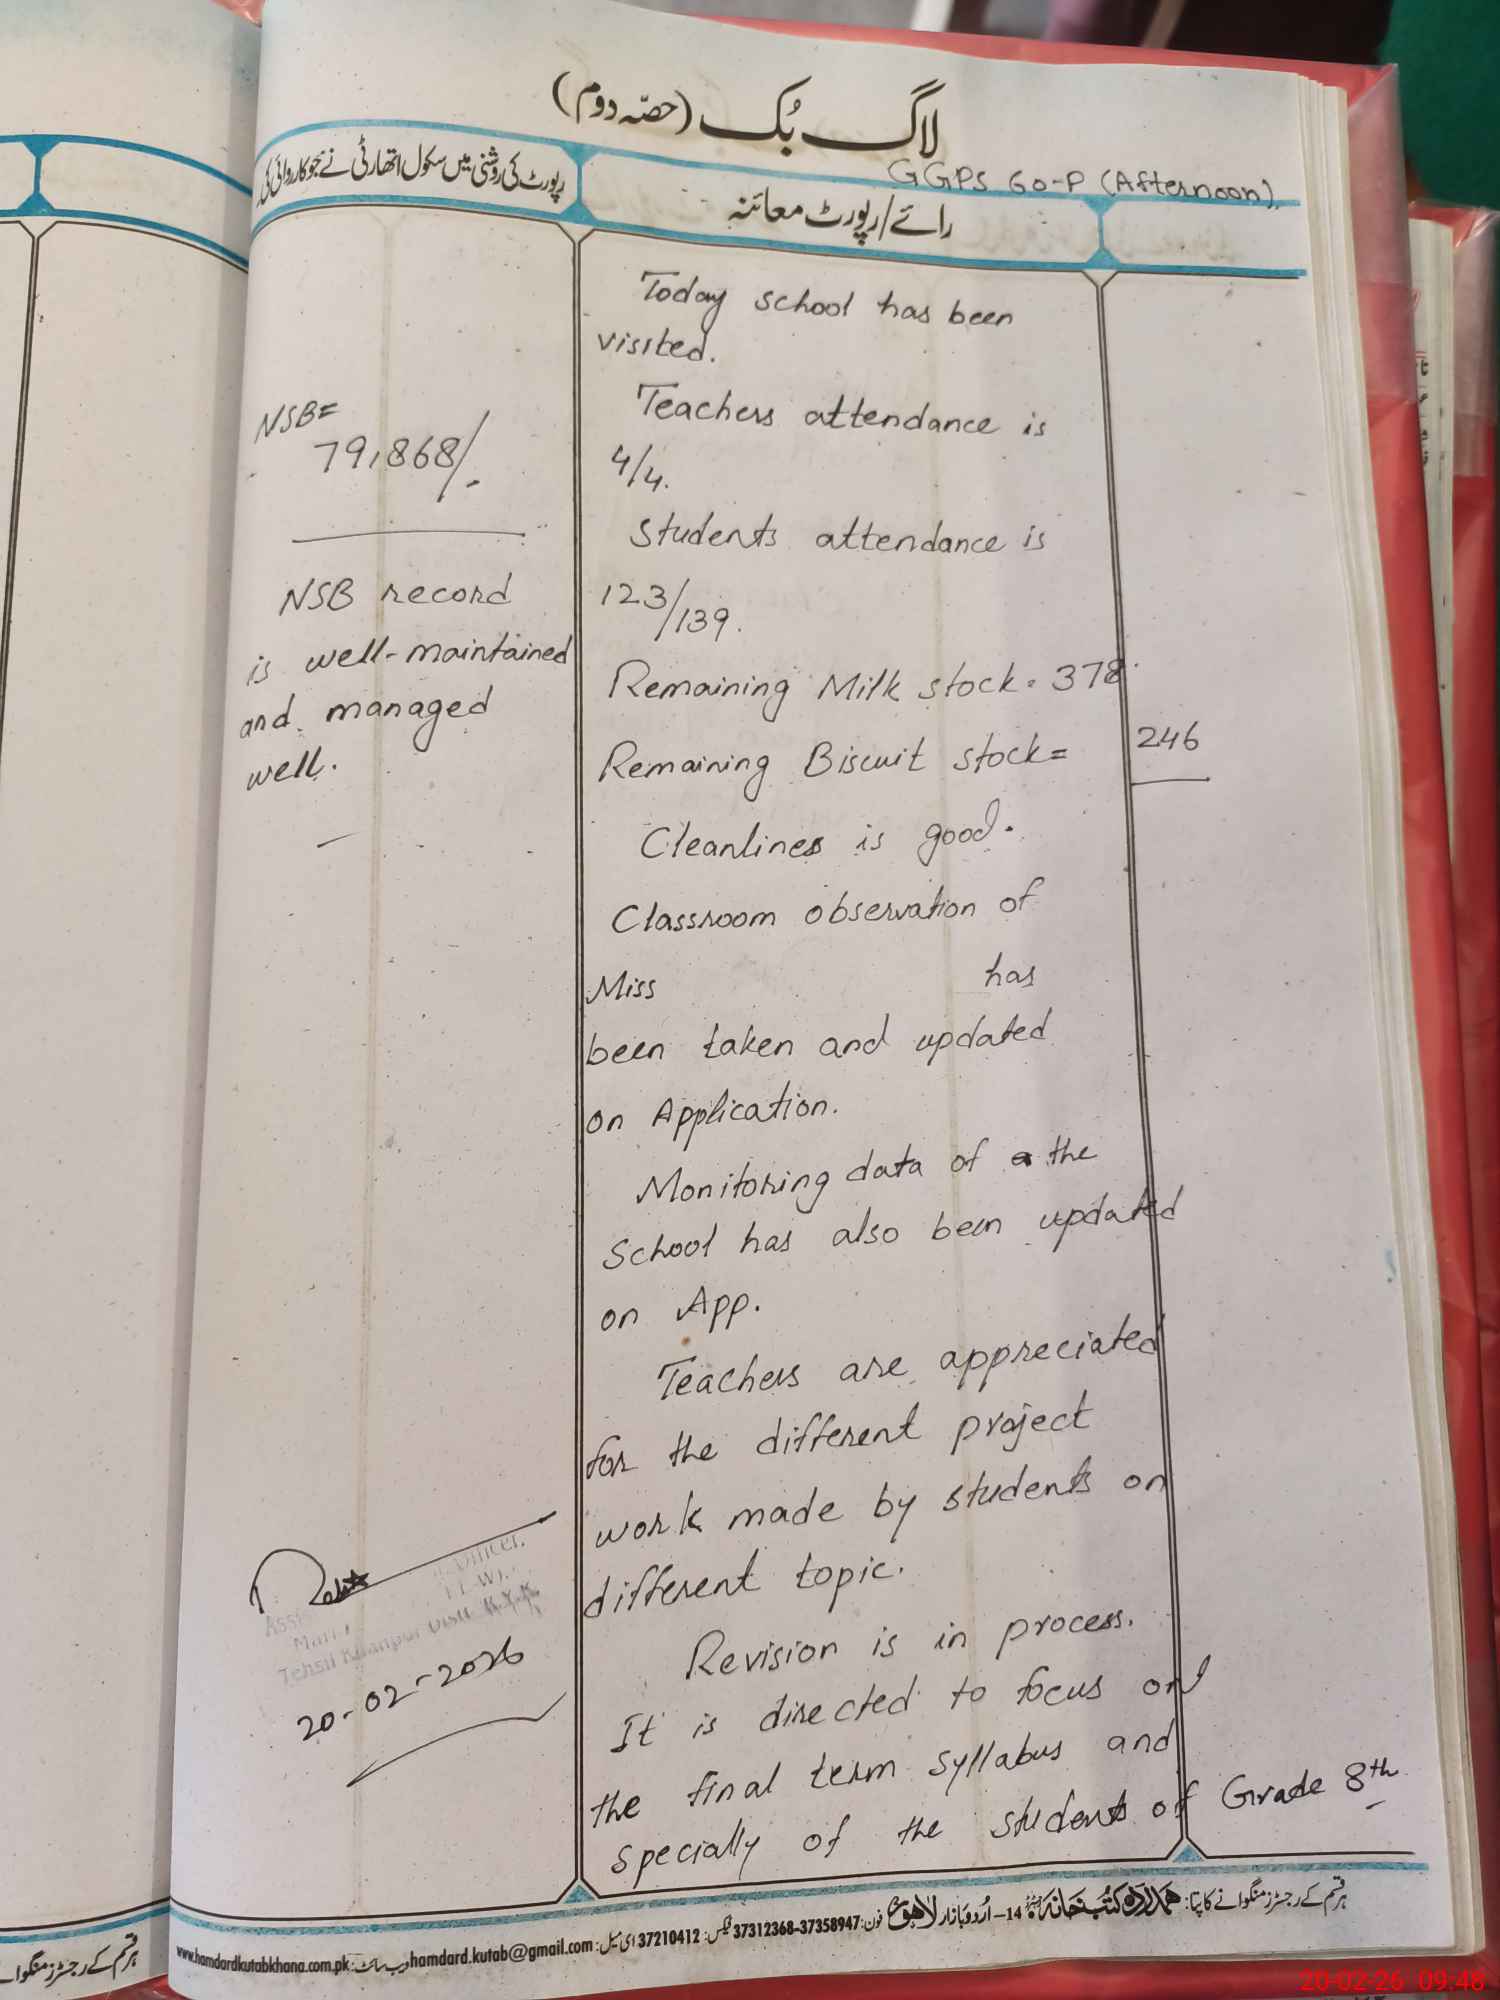 لاگ بُک (حصّہ دوم)
GGPS 60-P (Afternoon).
رائے/رپورٹ معائنہ
رپورٹ کی روشنی میں سکول اتھارٹی نے جو کاروائی کی
Today school has been
visited.
Teachers attendance is
4/4.
Students attendance is
123/139.
Remaining Milk stock = 378.
Remaining Biscuit stock = 246
Cleanlines is good.
Classroom observation of
Miss has
been taken and updated
on Application.
Monitoring data of the
School has also been updated
on App.
Teachers are appreciated
for the different project
work made by students on
different topic.
Revision is in process.
It is directed to focus on
the final term syllabus and
specially of the students of Grade 8th
NSB=
79,868/.
NSB record
is well-maintained
and managed
well.
Officer,
Tehsil Khanpur Distt R.Y.K
20-02-2026
ہر قسم کے رجسٹرز منگوانے کا پتا: ہمدرد کتب خانہ 14-اُردو بازار لاہور فون: 37312368-37358947 فیکس: 37210412 ای میل: hamdard.kutab@gmail.com ویب سائٹ: www.hamdardkutabkhana.com.pk
ہر قسم کے رجسٹرز منگوانے
20-02-26 09:48